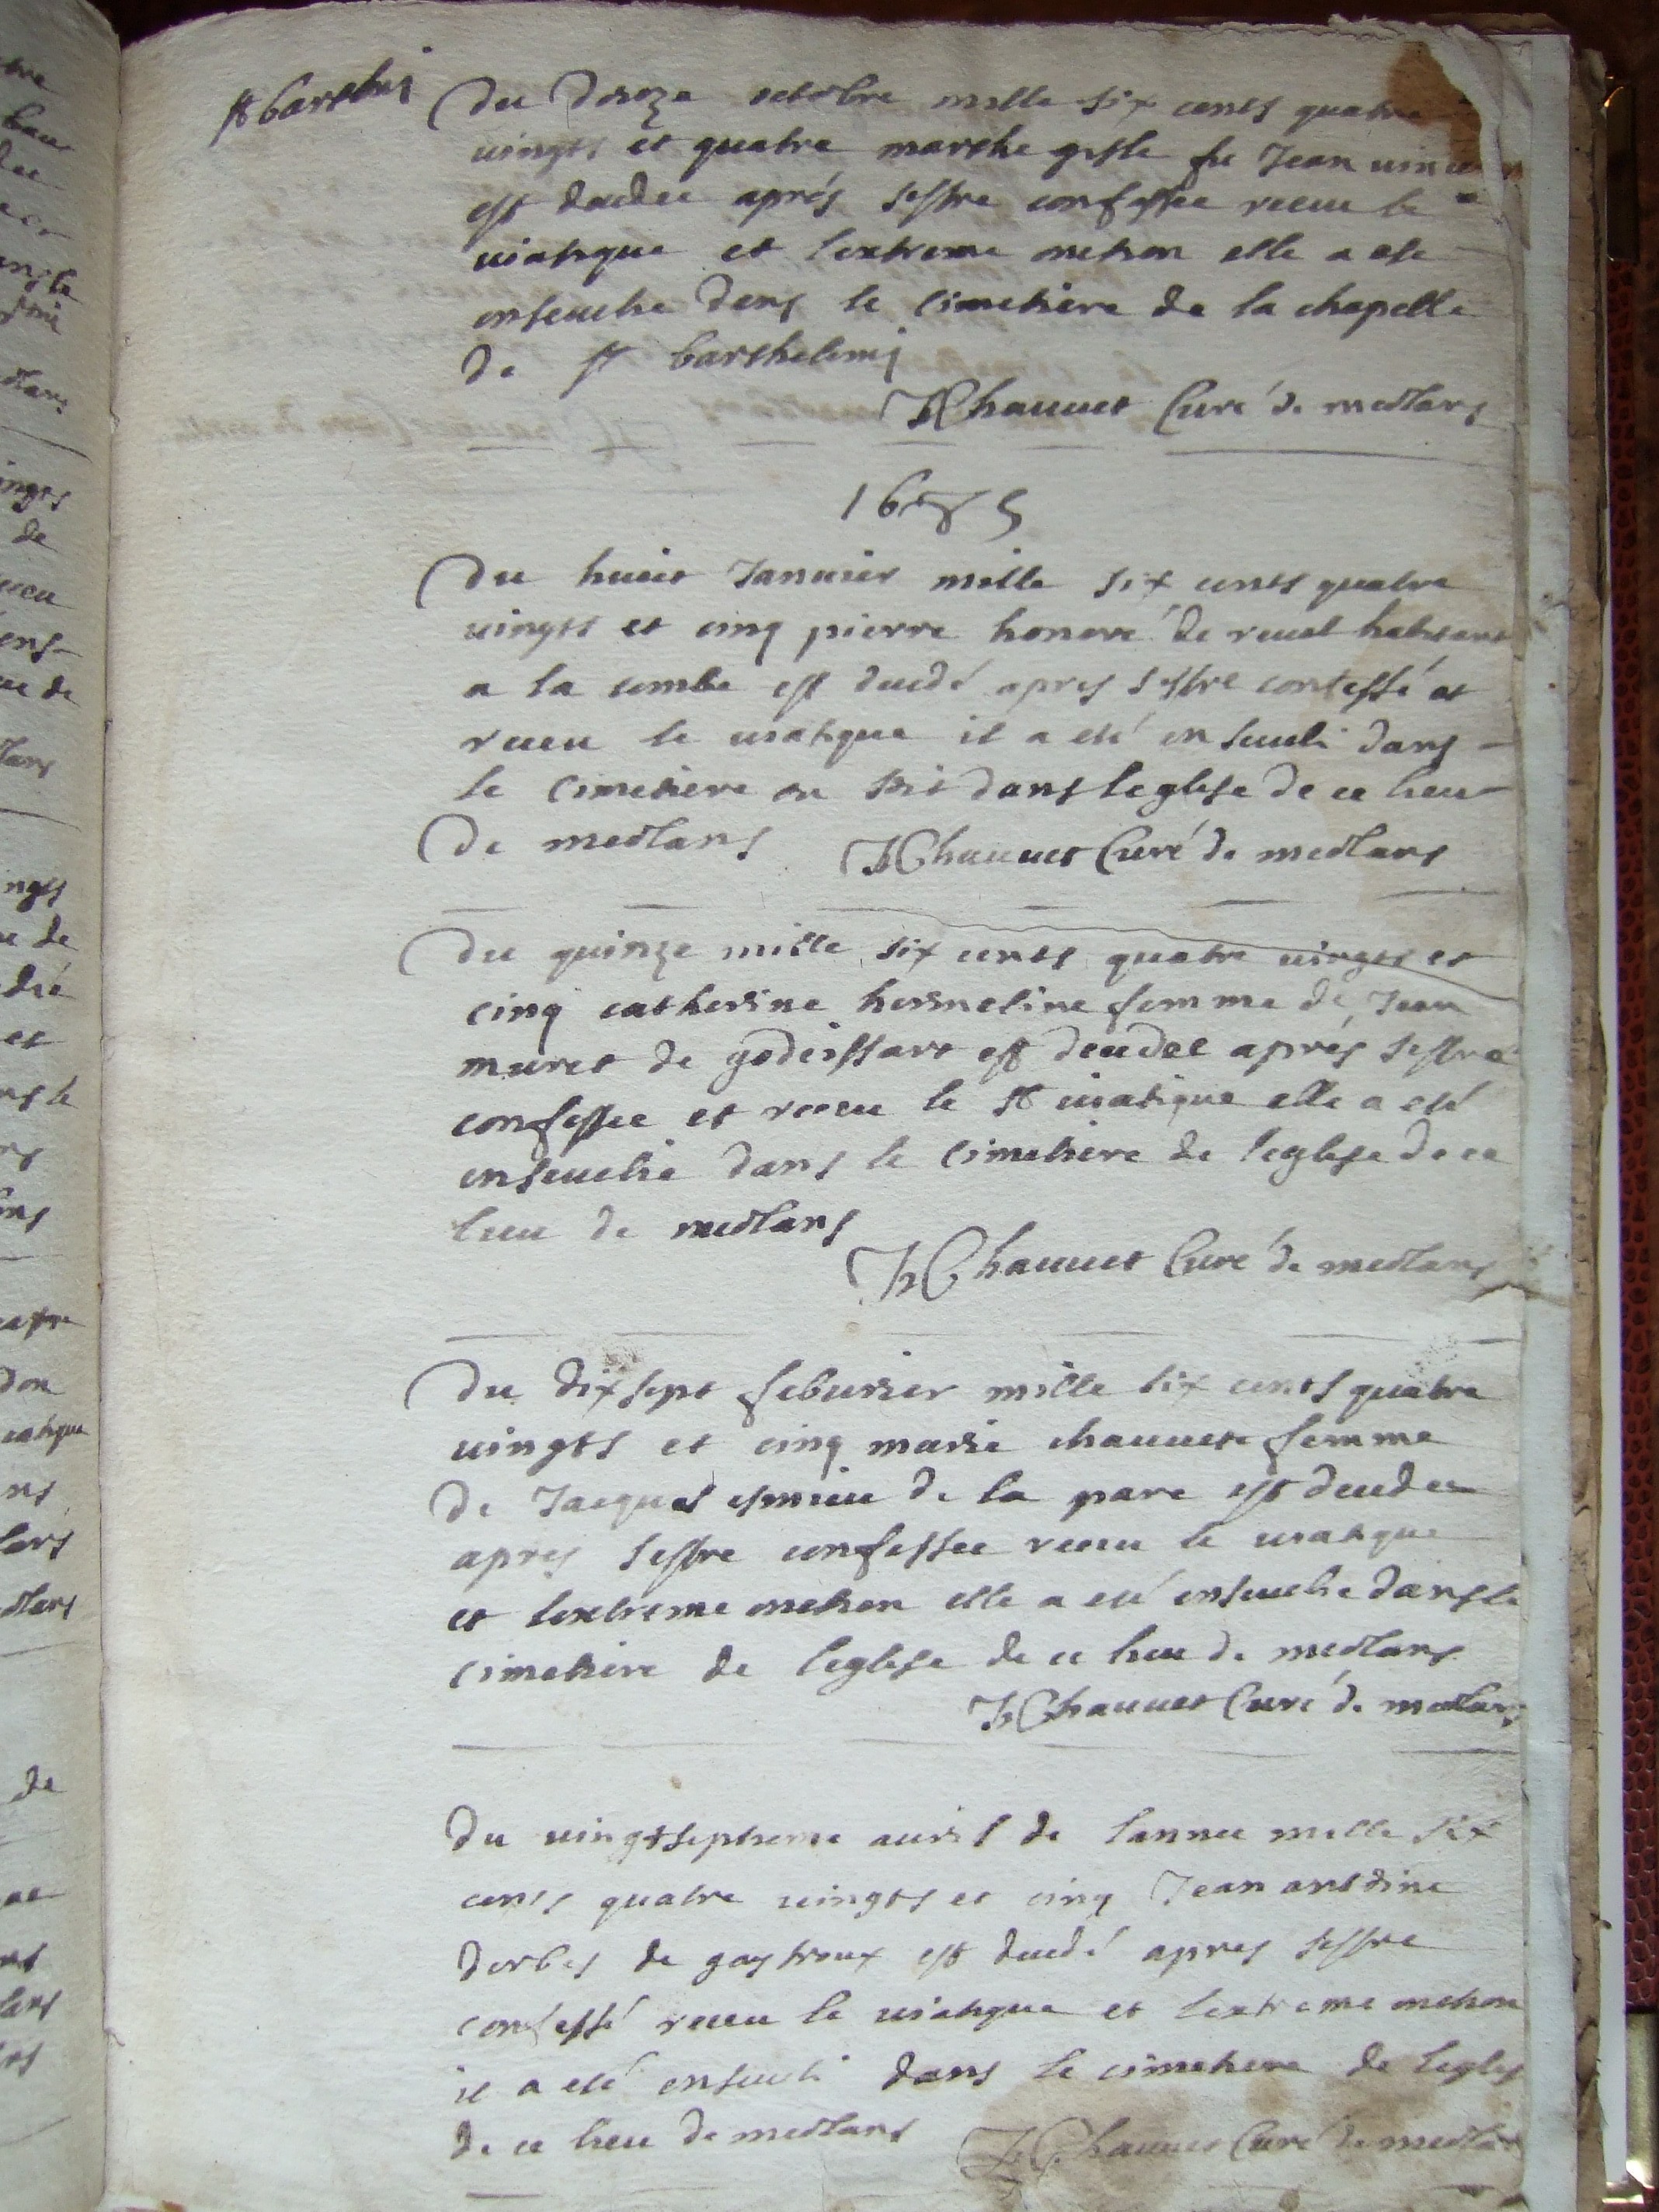 st barthei
Du douze octobre mille six cents quatre
vingts et quatre marthe giste fu Jean vincen
est decedee aprés sestre confessee receu le
viatique et lextreme onction elle a esté
ensevelie dans le Cimetiere de la chapelle
de st barthelemi
JChauvet Curé de meollans
1685
Du huict Janvier mille six cents quatre
vingts et cinq pierre honoré de revel habitant
a la combe est decedé apres sestre confessé et
receu le viatique il a eté enseveli dans
le Cimetiere ou soit dans leglise de ce lieu
De meollans JChauvet Curé de meollans
Du quinze mille six cents quatre vingts et
cinq catherine hermeline femme de Jean
muret de godeissart est decedee aprés sestre
confessee et receu le st viatique elle a eté
ensevelie dans le Cimetiere de leglise de ce
lieu de meollans
JChauvet Curé de meollans
Du dixsept febvrier mille six cents quatre
vingts et cinq marie chauvete femme
de Jacques esmieu de la pare est decedee
apres sestre confessee receu le viatique
et lextreme onction elle a eté ensevelie dans le
Cimetiere de leglise de ce lieu de meollans
JChauvet Curé de meollans
Du vingtseptieme avril de lannee mille six
cents quatre vingts et cinq Jean antoine
derbes de gaytroux est decedé apres sestre
confessé receu le viatique et lextreme onction
il a eté enseveli dans le cimetiere de leglis
de ce lieu de meollans JChauvet Curé de meollan